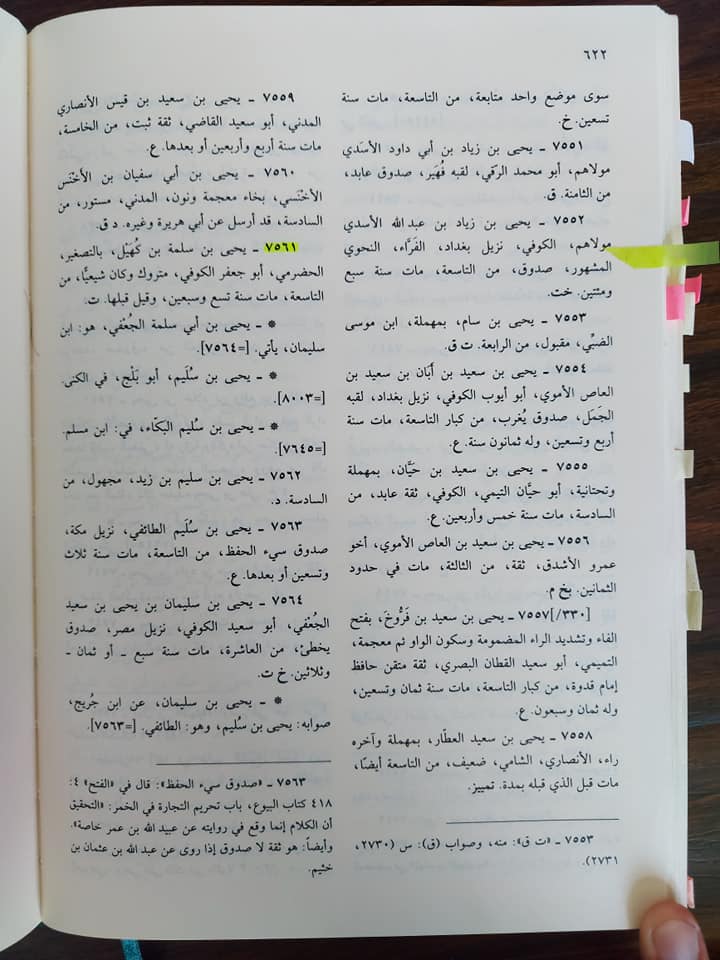 ٦٢٢
سوى موضع واحد متابعة، من التاسعة، مات سنة
تسعين. خ.
٧٥٥١ ـ يحيى بن زياد بن أبي داود الأسَدي
مولاهم، أبو محمد الرَقي، لقبه فُهَير، صدوق عابد،
من الثامنة. ق.
٧٥٥٢ ـ يحيى بن زياد بن عبد الله الأسدي
مولاهم، الكوفي، نزيل بغداد، الفَرَّاء، النحوي
المشهور، صدوق، من التاسعة، مات سنة سبع
ومئتين. خت.
٧٥٥٣ ـ يحيى بن سام، بمهملة، ابن موسى
الضبِّي، مقبول، من الرابعة. ت ق.
٧٥٥٤ ـ يحيى بن سعيد بن أبَان بن سعيد بن
العاص الأموي، أبو أيوب الكوفي، نزيل بغداد، لقبه
الجَمَل، صدوق يُغرب، من كبار التاسعة، مات سنة
أربع وتسعين، وله ثمانون سنة. ع.
٧٥٥٥ ـ يحيى بن سعيد بن حَيَّان، بمهملة
وتحتانية، أبو حيَّان التيمي، الكوفي، ثقة عابد، من
السادسة، مات سنة خمس وأربعين. ع.
٧٥٥٦ ـ يحيى بن سعيد بن العاص الأموي، أخو
عمرو الأشدق، ثقة، من الثالثة، مات في حدود
الثمانين. بخ م.
[٣٣٠/] ٧٥٥٧ ـ يحيى بن سعيد بن فَرُّوخَ، بفتح
الفاء وتشديد الراء المضمومة وسكون الواو ثم معجمة،
التميمي، أبو سعيد القطان البصري، ثقة متقن حافظ
إمام قدوة، من كبار التاسعة، مات سنة ثمان وتسعين،
وله ثمان وسبعون. ع.
٧٥٥٨ ـ يحيى بن سعيد العطَّار، بمهملة وآخره
راء، الأنصاري، الشامي، ضعيف، من التاسعة أيضًا،
مات قبل الذي قبله بمدة. تمييز.
٧٥٥٣ ـ «ت ق»: منه، وصواب (ق): س (٢٧٣٠،
٢٧٣١).
٧٥٥٩ ـ يحيى بن سعيد بن قيس الأنصاري
المدني، أبو سعيد القاضي، ثقة ثبت، من الخامسة،
مات سنة أربع وأربعين أو بعدها. ع.
٧٥٦٠ ـ يحيى بن أبي سفيان بن الأخْنَس
الأخْنَسي، بخاء معجمة ونون، المدني، مستور، من
السادسة، قد أرسل عن أبي هريرة وغيره. د ق.
٧٥٦١ ـ يحيى بن سلمة بن كُهَيْل، بالتصغير،
الحضرمي، أبو جعفر الكوفي، متروك وكان شيعيًّا، من
التاسعة، مات سنة تسع وسبعين، وقيل قبلها. ت.
* ـ يحيى بن أبي سلمة الجُعْفي، هو: ابن
سليمان، يأتي. [=٧٥٦٤].
* ـ يحيى بن سُلَيم، أبو بَلْج، في الكنى.
[=٨٠٠٣].
* ـ يحيى بن سُليم البكّاء، في: ابن مسلم.
[=٧٦٤٥].
٧٥٦٢ ـ يحيى بن سليم بن زيد، مجهول، من
السادسة. د.
٧٥٦٣ ـ يحيى بن سُلَيم الطائفي، نَزيل مكة،
صدوق سيء الحفظ، من التاسعة، مات سنة ثلاث
وتسعين أو بعدها. ع.
٧٥٦٤ ـ يحيى بن سليمان بن يحيى بن سعيد
الجُعْفي، أبو سعيد الكوفي، نزيل مصر، صدوق
يخطئ، من العاشرة، مات سنة سبع ـ أو ثمان ـ
وثلاثين. خ ت.
* ـ يحيى بن سليمان، عن ابن جُريج،
صوابه: يحيى بن سُليم، وهو: الطائفي. [=٧٥٦٣].
٧٥٦٣ ـ «صدوق سيء الحفظ»: قال في «الفتح» ٤:
٤١٨ كتاب البيوع، باب تحريم التجارة في الخمر: «التحقيق
أن الكلام إنما وقع في روايته عن عبيد الله بن عمر خاصة».
وأيضاً: هو ثقة لا صدوق إذا روى عن عبد الله بن عثمان بن
خثيم.